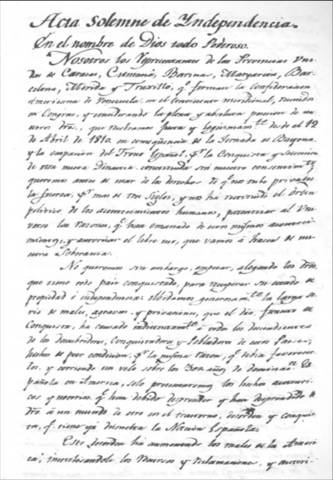 Acta Solemne de Yndependencia.
En el nombre de Dios todo Poderoso.
Nosotros los Representantes de las Provincias Uni-
das de Caracas, Cumaná, Barinas, Margarita, Bar-
celona, Mérida y Truxillo, q. forman la Confederacion
Americana de Venezuela, en el Continente meridional, reunidos
en Congreso, y considerando la plena y absoluta posesion de
nuestros dros., que recobramos justa y legitimam.te desde el 19
de Abril de 1810, en consequencia de la Jornada de Bayona,
y la ocupacion del Trono Español, p.r la Conquista y sucesion
de otra nueva Dinastia, constituida sin nuestro consentim.to
queremos antes de usar de los derechos de q. nos tuvo privados
la fuerza, p.r mas de tres Siglos, y nos ha restituido el orden
politico de los acontecimientos humanos, patentizar al Uni-
verso las razones, q. han emanado de estos mismos aconteci-
mientos, y autorizan el libre uso, que vamos á hacer de nu-
estra Soberania.
No queremos sin embargo, empezar, alegando los dros.
que tiene todo pais conquistado, para recuperar su estado de
propiedad é independencia: olvidamos generosam.te la larga se-
rie de males, agravios, y privaciones, que el dro. funesto de
Conquista, ha causado indistintam.te á todos los descendientes
de los descubridores, Conquistadores y Pobladores de estos Paises,
hechos de peor condicion, p.r la misma razon, q. debia favorecer-
los, y corriendo un velo sobre los 300 años de dominac.n Es-
pañola en America, solo presentaremos los hechos autenti-
cos y notorios, q. han debido desprender y han desprendido de
dro. á un mundo de otro en el trastorno, desorden y conquis-
ta, q. tiene ya disuelta la Nacion Española.
Este desorden ha aumentado los males de la Ameri-
ca, inutilizandole los recursos y reclamaciones, y autori-